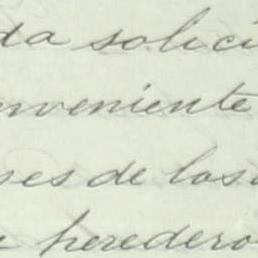 da solici
nveniente
ses de los
e heredero